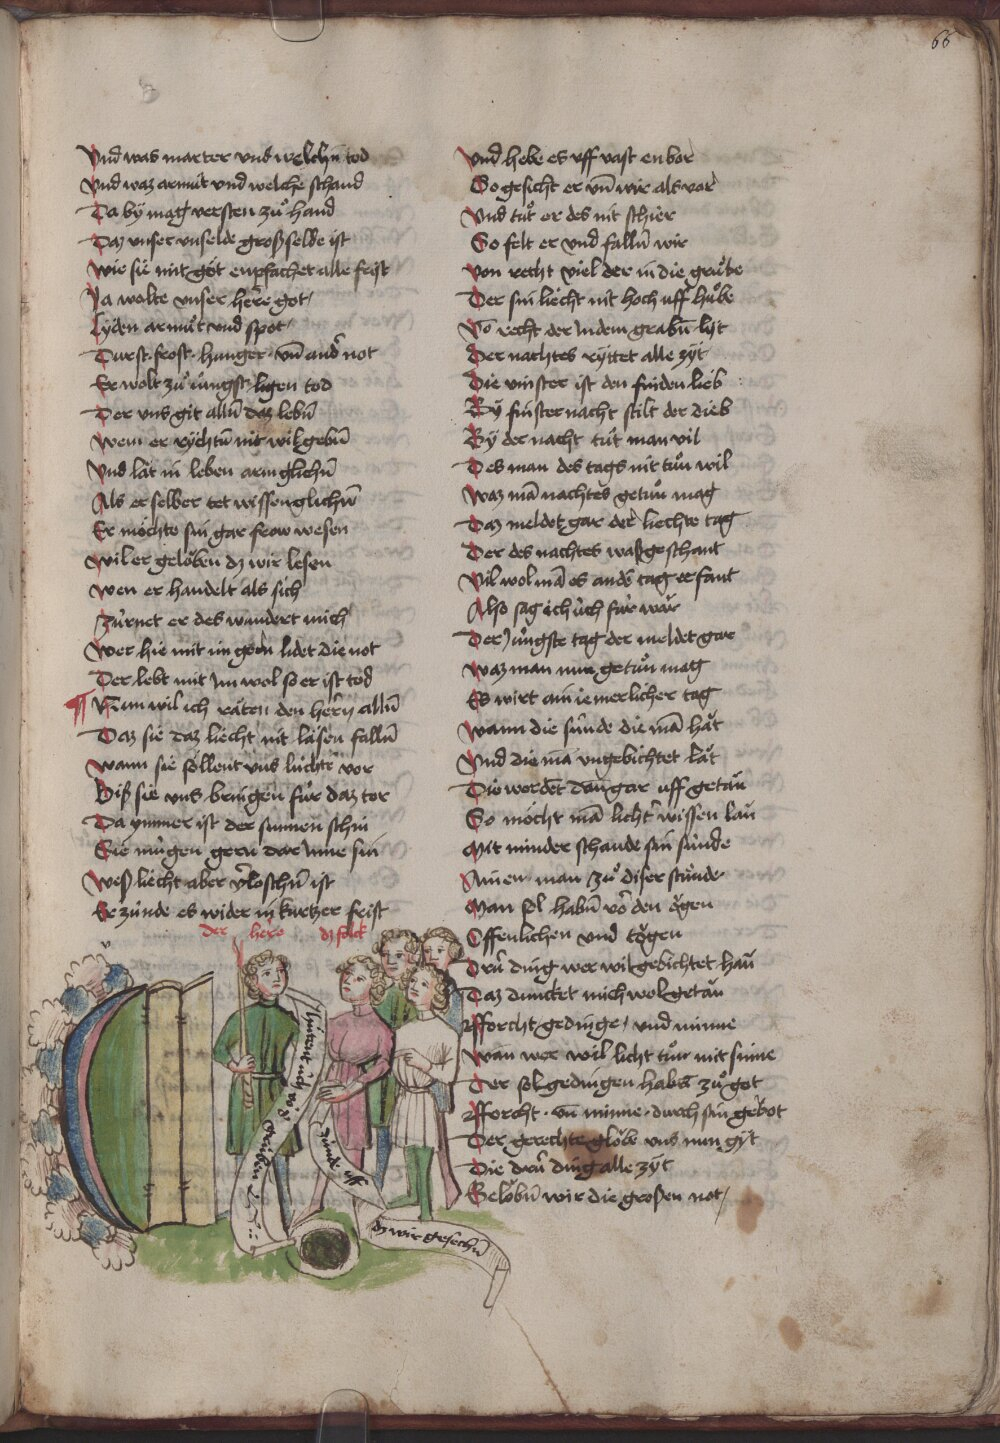 66
Vnd was marter vnd welchñ tod
Vnd waz armůt vnd welche schand
Da bÿ mag versten zů hand
Daz vnser vnselde groß selde ist
Wie sie mit got enpfachet alle frist
Ja wolte vnser herre got
Lyden armůt vnd spot
Durst · frost · hunger · vñ ander not
Er wolt zů iungst ligen tod
Der vns git allñ daz lebñ
Wem er rychtũ nit wil gebñ
Vnd lat in leben armglichñ
Als er selber tet wissenglichñ
Er möchte sin gar frow wesen
Wil er gelöben dz wir lesen
Wen er handelt als sich
Zürnet er des wundert mich
Wer hie mit im gern lidet die not
Der lebt mit Im wol so er ist tod
Nun wil ich räten den herñ allñ
Daz sie daz liecht nit läsen fallñ
Wann sie söllent vns lüchtē vor
Biß sie vns bringen für daz tor
Da ymmer ist der sunnen schin
Sie mügen gern dar Inne sin
Weß liecht aber v̄loschñ ist
Er zünde es wider in kurtzer frist
der herre dz folck
zünde uff
dz wir gesechñ
Vnd hebe es uff vast enbor
So gesicht er vñ wir als vor
Vnd tůt er des nit schier
So felt er vnd fallñ wir
Von recht viel der in die grůbe
Der sin liecht nit hoch uff hůbe
Vō recht der In dem grabñ lyt
Der nachtes ryttet alle zÿt
Die vinster ist den finden lieb
Bÿ finster nacht stilt der dieb
Bÿ der nacht tůt man vil
Des man des tags nit tůn wil
Waz mā nachtes getůn mag
Daz meldet gar der liechte tag
Der des nachtes waß geschant
Vil wol mā es andͤs tag erfant
Also sag ich üch für wär
Der Jüngste tag der meldet gar
Waz man nun getůn mag
Es wirt ain iemerlicher tag
Wann die sünde die mā hät
Vnd die mā vngebichtet lät
Die werdēt dañ gar uff getän
So möcht mā licht wissen lan
Mit minder schande sin sünde
Ainen man zů diser stunde
Man sol habñ vor den ögen
Offenlichen vnd tögen
Drü ding wer wil gebichtet han
Daz duncket mich wol getän
Fforcht gedinge / vnd minne
Wan wer wil licht tůn mit sinne
Der sol gedingen habñ zů got
Fforcht · vñ minne · durch sin gebot
Der gerechte glöbe vns nun gÿt
Die drü ding alle zÿt
Gelöbñ wir die grosen not /